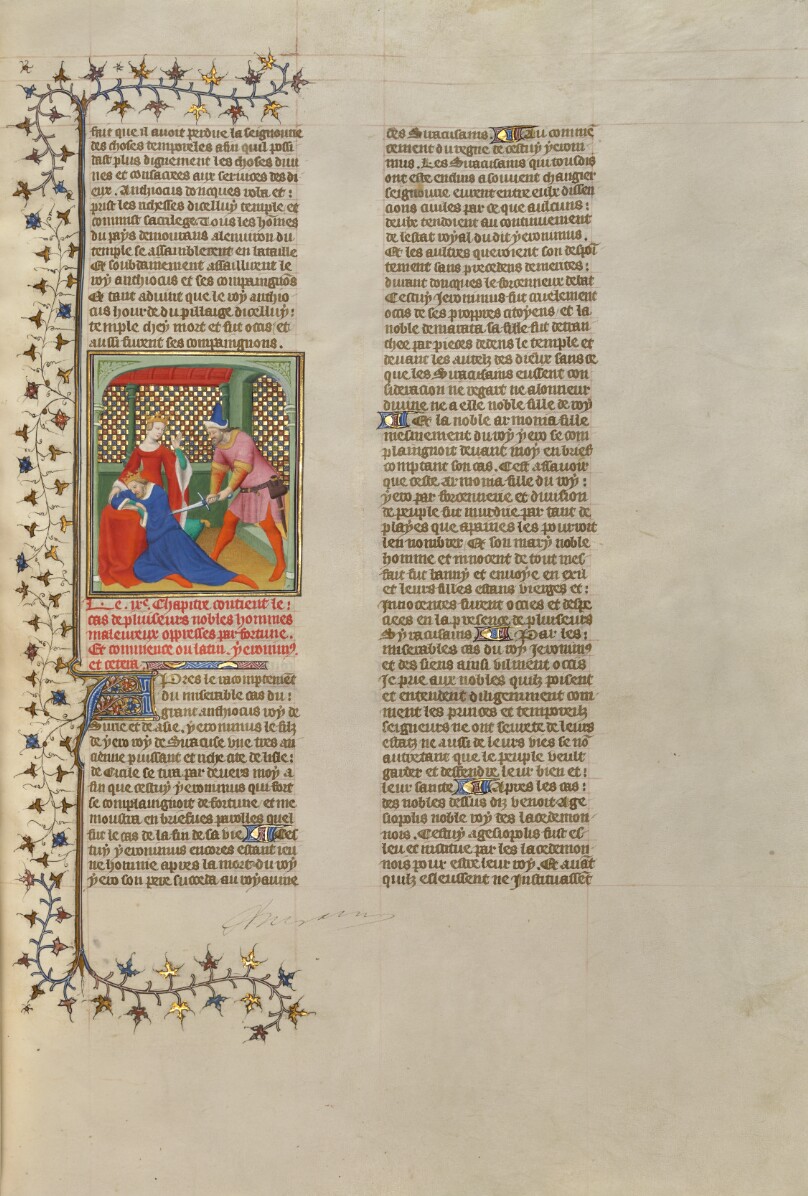 fait que il auoit perdue la seignourie
des choses temporeles afin quil possi
dast plus dignement les choses diui
nes et consacrees aux seruices des di
eux. Anthiocus doncques vola et :
prist les richesses dicelluy temple et
commist sacrilege. Tous les hõmes
du pays demourans alenuiron du
temple se assamblerent en bataille
Et soubdainement assaillirent le
roy anthiocus et ses compaingnõs
Et tant aduint que le roy anthio
cus hourde du pillaige dicelluy :
temple chey mort et fut occis et
aussi furent ses compaingnons.
Le. ixe. Chapitre contient le :
cas de pluiseurs nobles hommes
maleureux oppresses par fortune.
Et commence ou latin. yeronimus
et cetera.
Apres le racomptement
du miserable cas du :
grant anthiocus roy de
Surie et de asie. yeronimus le filz
de yero roy de Siracuse vne tres an
cienne puissant et riche cite de lisle :
de Cicile se tira par deuers moy a
fin que cestuy yeronimus qui fort
se complaingnoit de fortune et me
moustra en briefues parolles quel
fut le cas de la fin de sa vie Ces
tuy yeronimus encores estant ieu
ne homme apres la mort du roy
yero son pere succeda au royaume
des Siracusains. Au comme
cement du regne de cestuy yeroni
mus. Les Siracusains qui tousdis
ont este enclins a souuent changier
seignourie eurent entre eulx dissen
cions ciuiles par ce que aulcuns :
deulx tendoient au continuement
de lestat royal du dit yeronimus.
Et les aultres queroient son despoi
tement sans precedens demerites :
durant doncques le forcenneux debat
Cestuy Jeronimus fut cruelement
occis de ses propres citoyens et la
noble demarata sa fille fut detran
chee par pieces dedens le temple et
deuant les autelz des dieux sans ce
que les Siracusains eussent con
sideracion ne regart ne alonneur
diuine ne a elle noble fille de roy
Et la noble armonia fille
mesmement du roy yero se com
plaingnoit deuant moy en brief
comptant son cas. Cest assauoir
que ceste armonia fille du roy :
yero par forcennerie et diuision
de peuple fut murdrie par tant de
playes que apaines les pourroit
len nombrer Et son mary noble
homme et innocent de tout mes
fait fut banny et enuoye en exil
et leurs filles estans vierges et :
Innocentes furent occies et despe
ciees en la presence de pluiseurs
Syracusains Par les :
miserables cas du roy Jeronimus
et des siens ainsi vilment occis
Je prie aux nobles quilz poisent
et entendent diligemment com
ment les princes et temporelz
seigneurs ne ont seurete de leurs
estatz ne aussi de leurs vies se nõ
autretant que le peuple veult
garder et deffendre leur bien et :
leur sante Apres les cas :
des nobles dessus diz venoit Age
siopolis noble roy des lacedemon
nois. Cestuy agesiopolis fust es
leu et institue par les lacedemon
nois pour estre leur roy. Et auãt
quilz esleussent ne Instituassẽt